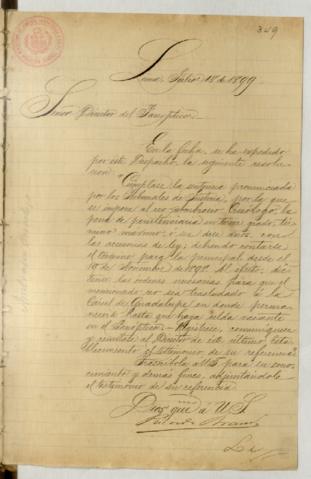 349
Lima, Julio 18 de 1899
Señor Director del Panóptico.
En la fecha, se ha expedido
por este Despacho, la siguiente resolu-
cion:
"Cúmplase la sentencia pronunciada
por los Tribunales de Justicia, por la que
se impone al reo Ambrosio la
pena de penitenciaria en tercer grado, tér-
mino máximo, ó sea doce años, con
las accesorias de ley; debiendo contarse
el término para la principal desde el
19 de Noviembre de 1898. Al efecto, dic-
tense las órdenes necesarias para que el
mencionado reo sea trasladado á la
Cárcel de Guadalupe en donde perma-
necerá hasta que haya celda vacante
en el Panóptico. Regístrese, comuníquese
y remítase al Director de este último Esta-
blecimiento el testimonio de su referencia."
Trascríbola á US. para su cono-
cimiento y demás fines, adjuntándole
el testimonio de su referencia.
Dios gue. á U.S.